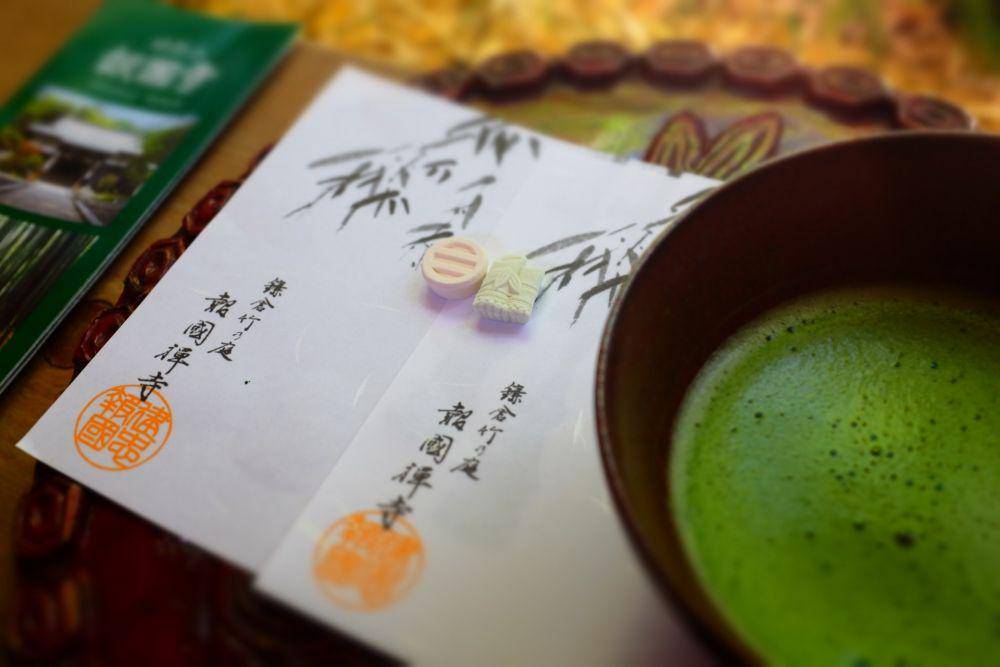 報國寺
鎌倉竹の庭
報國禅寺
建忠
報國
鎌倉竹の庭
報國禅寺